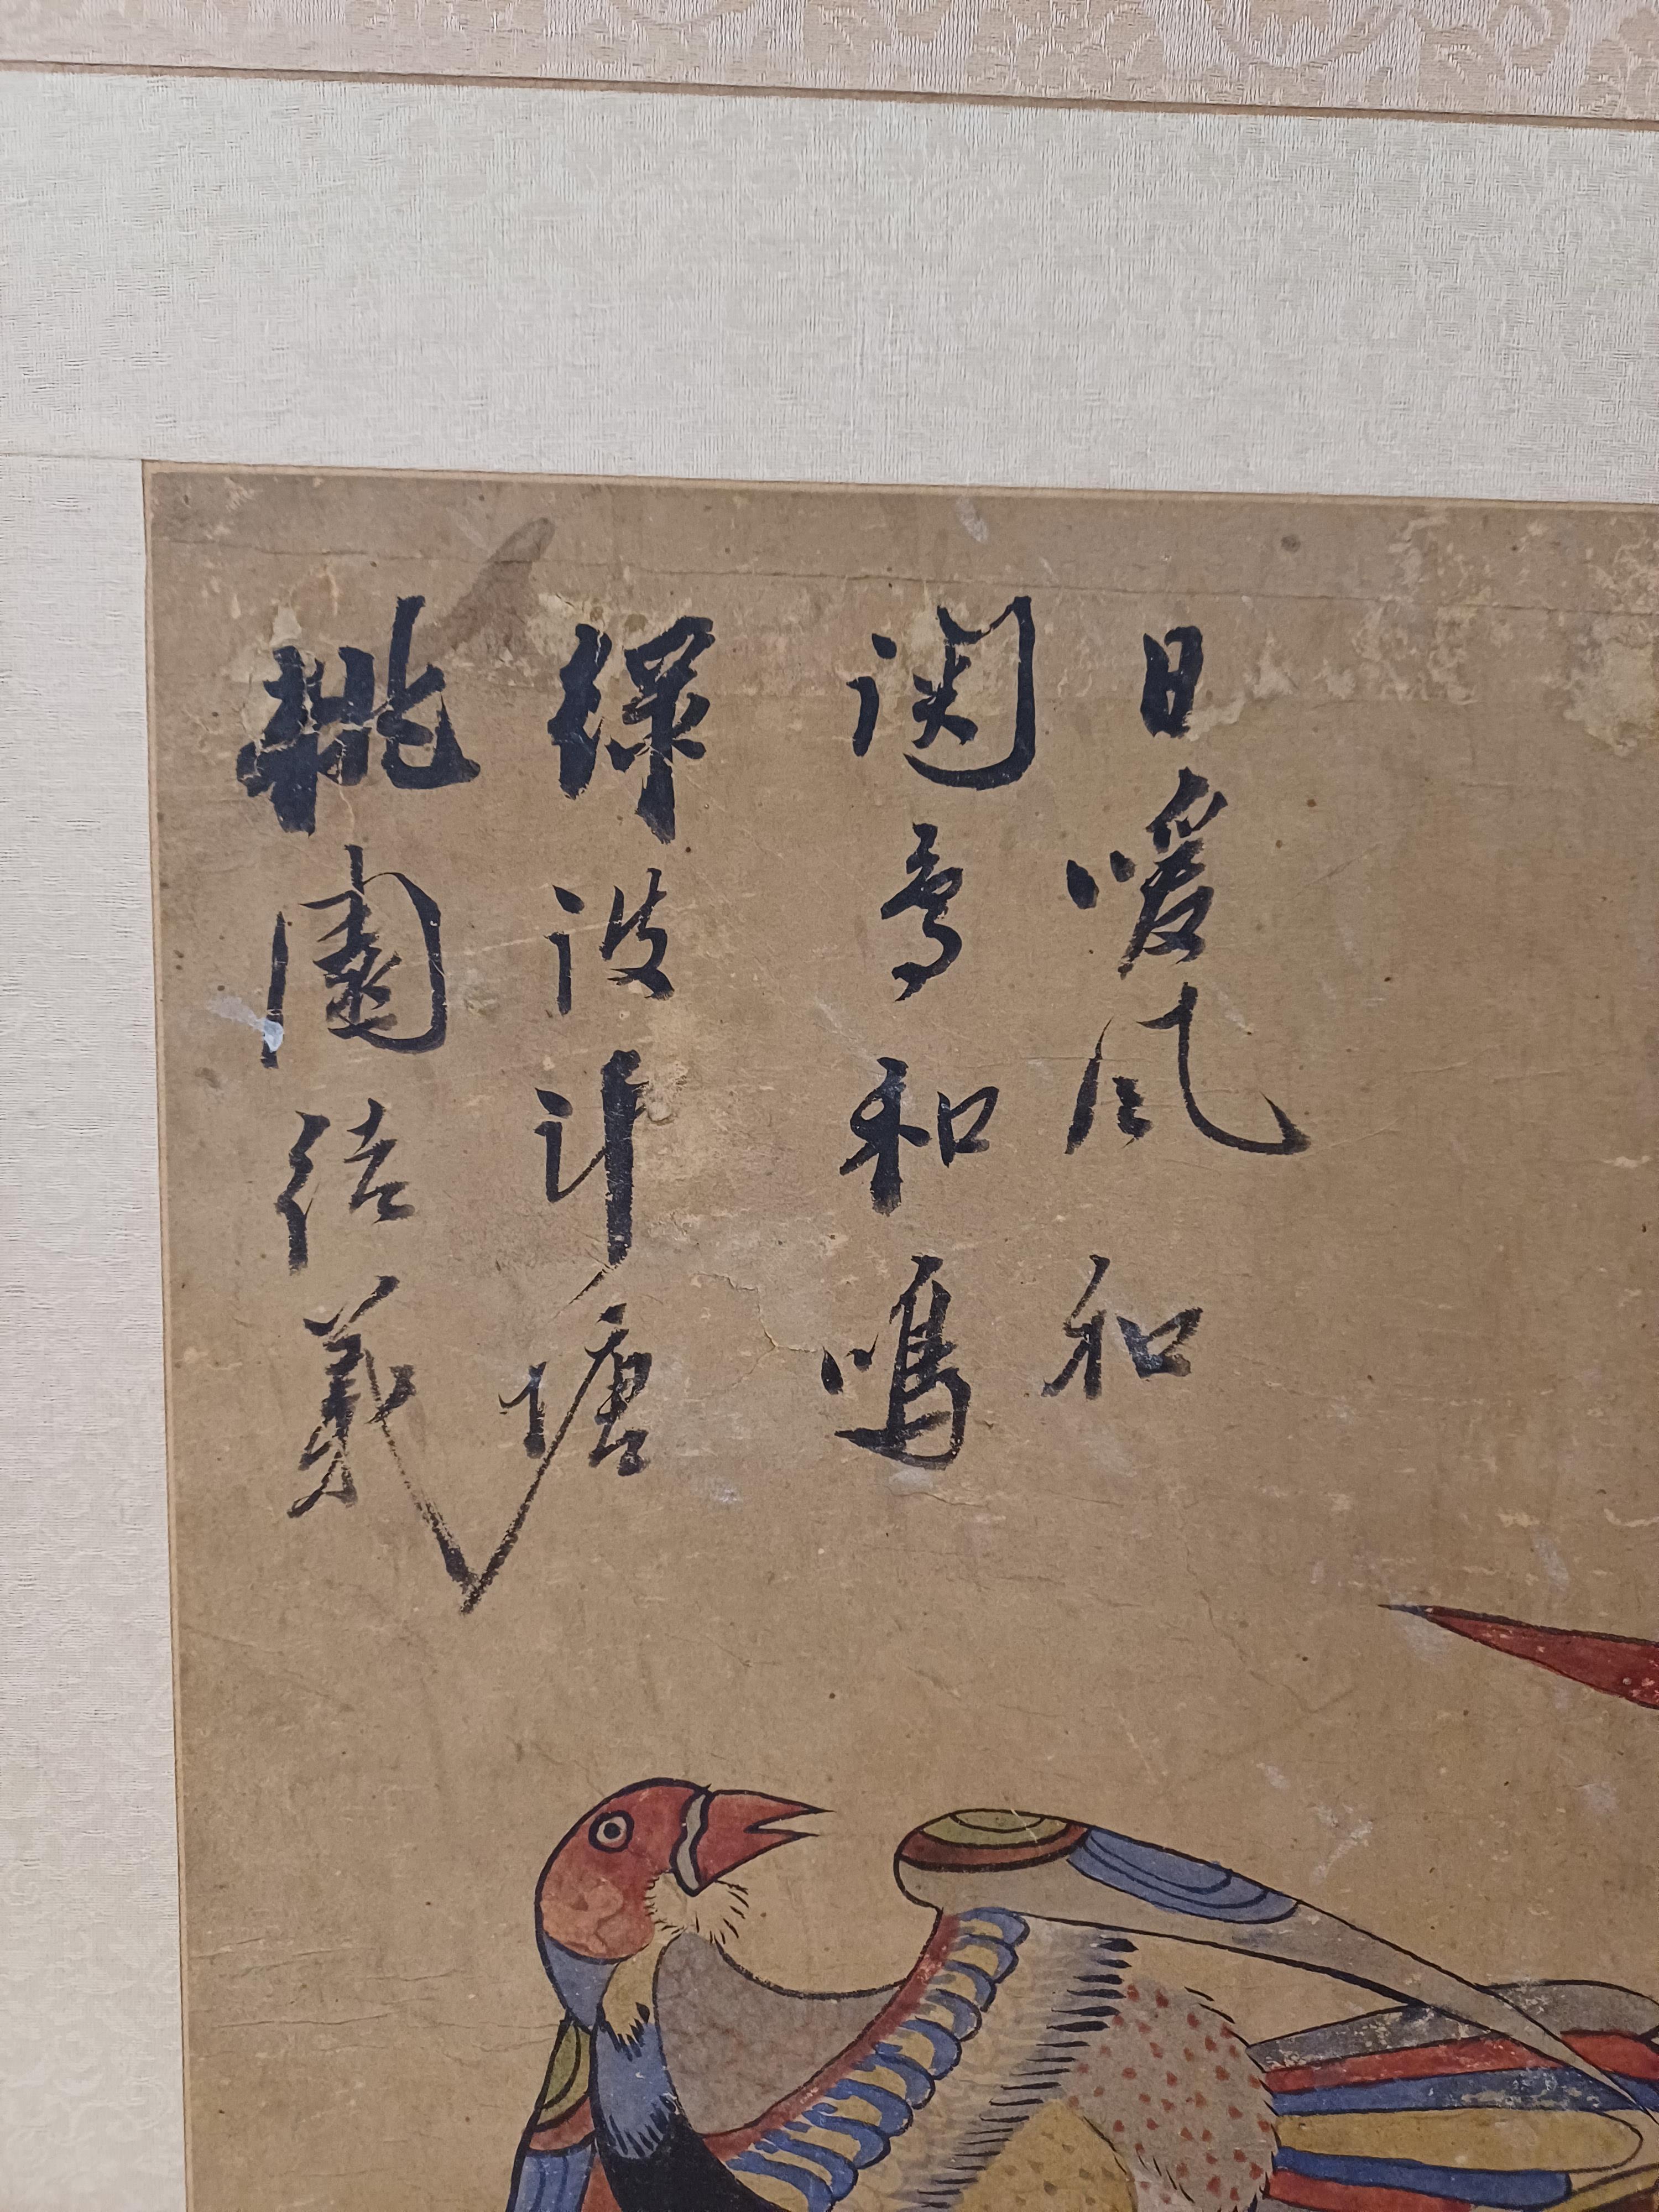 日暖風和
関鳥和鳴
緑波斗塘
桃園結義